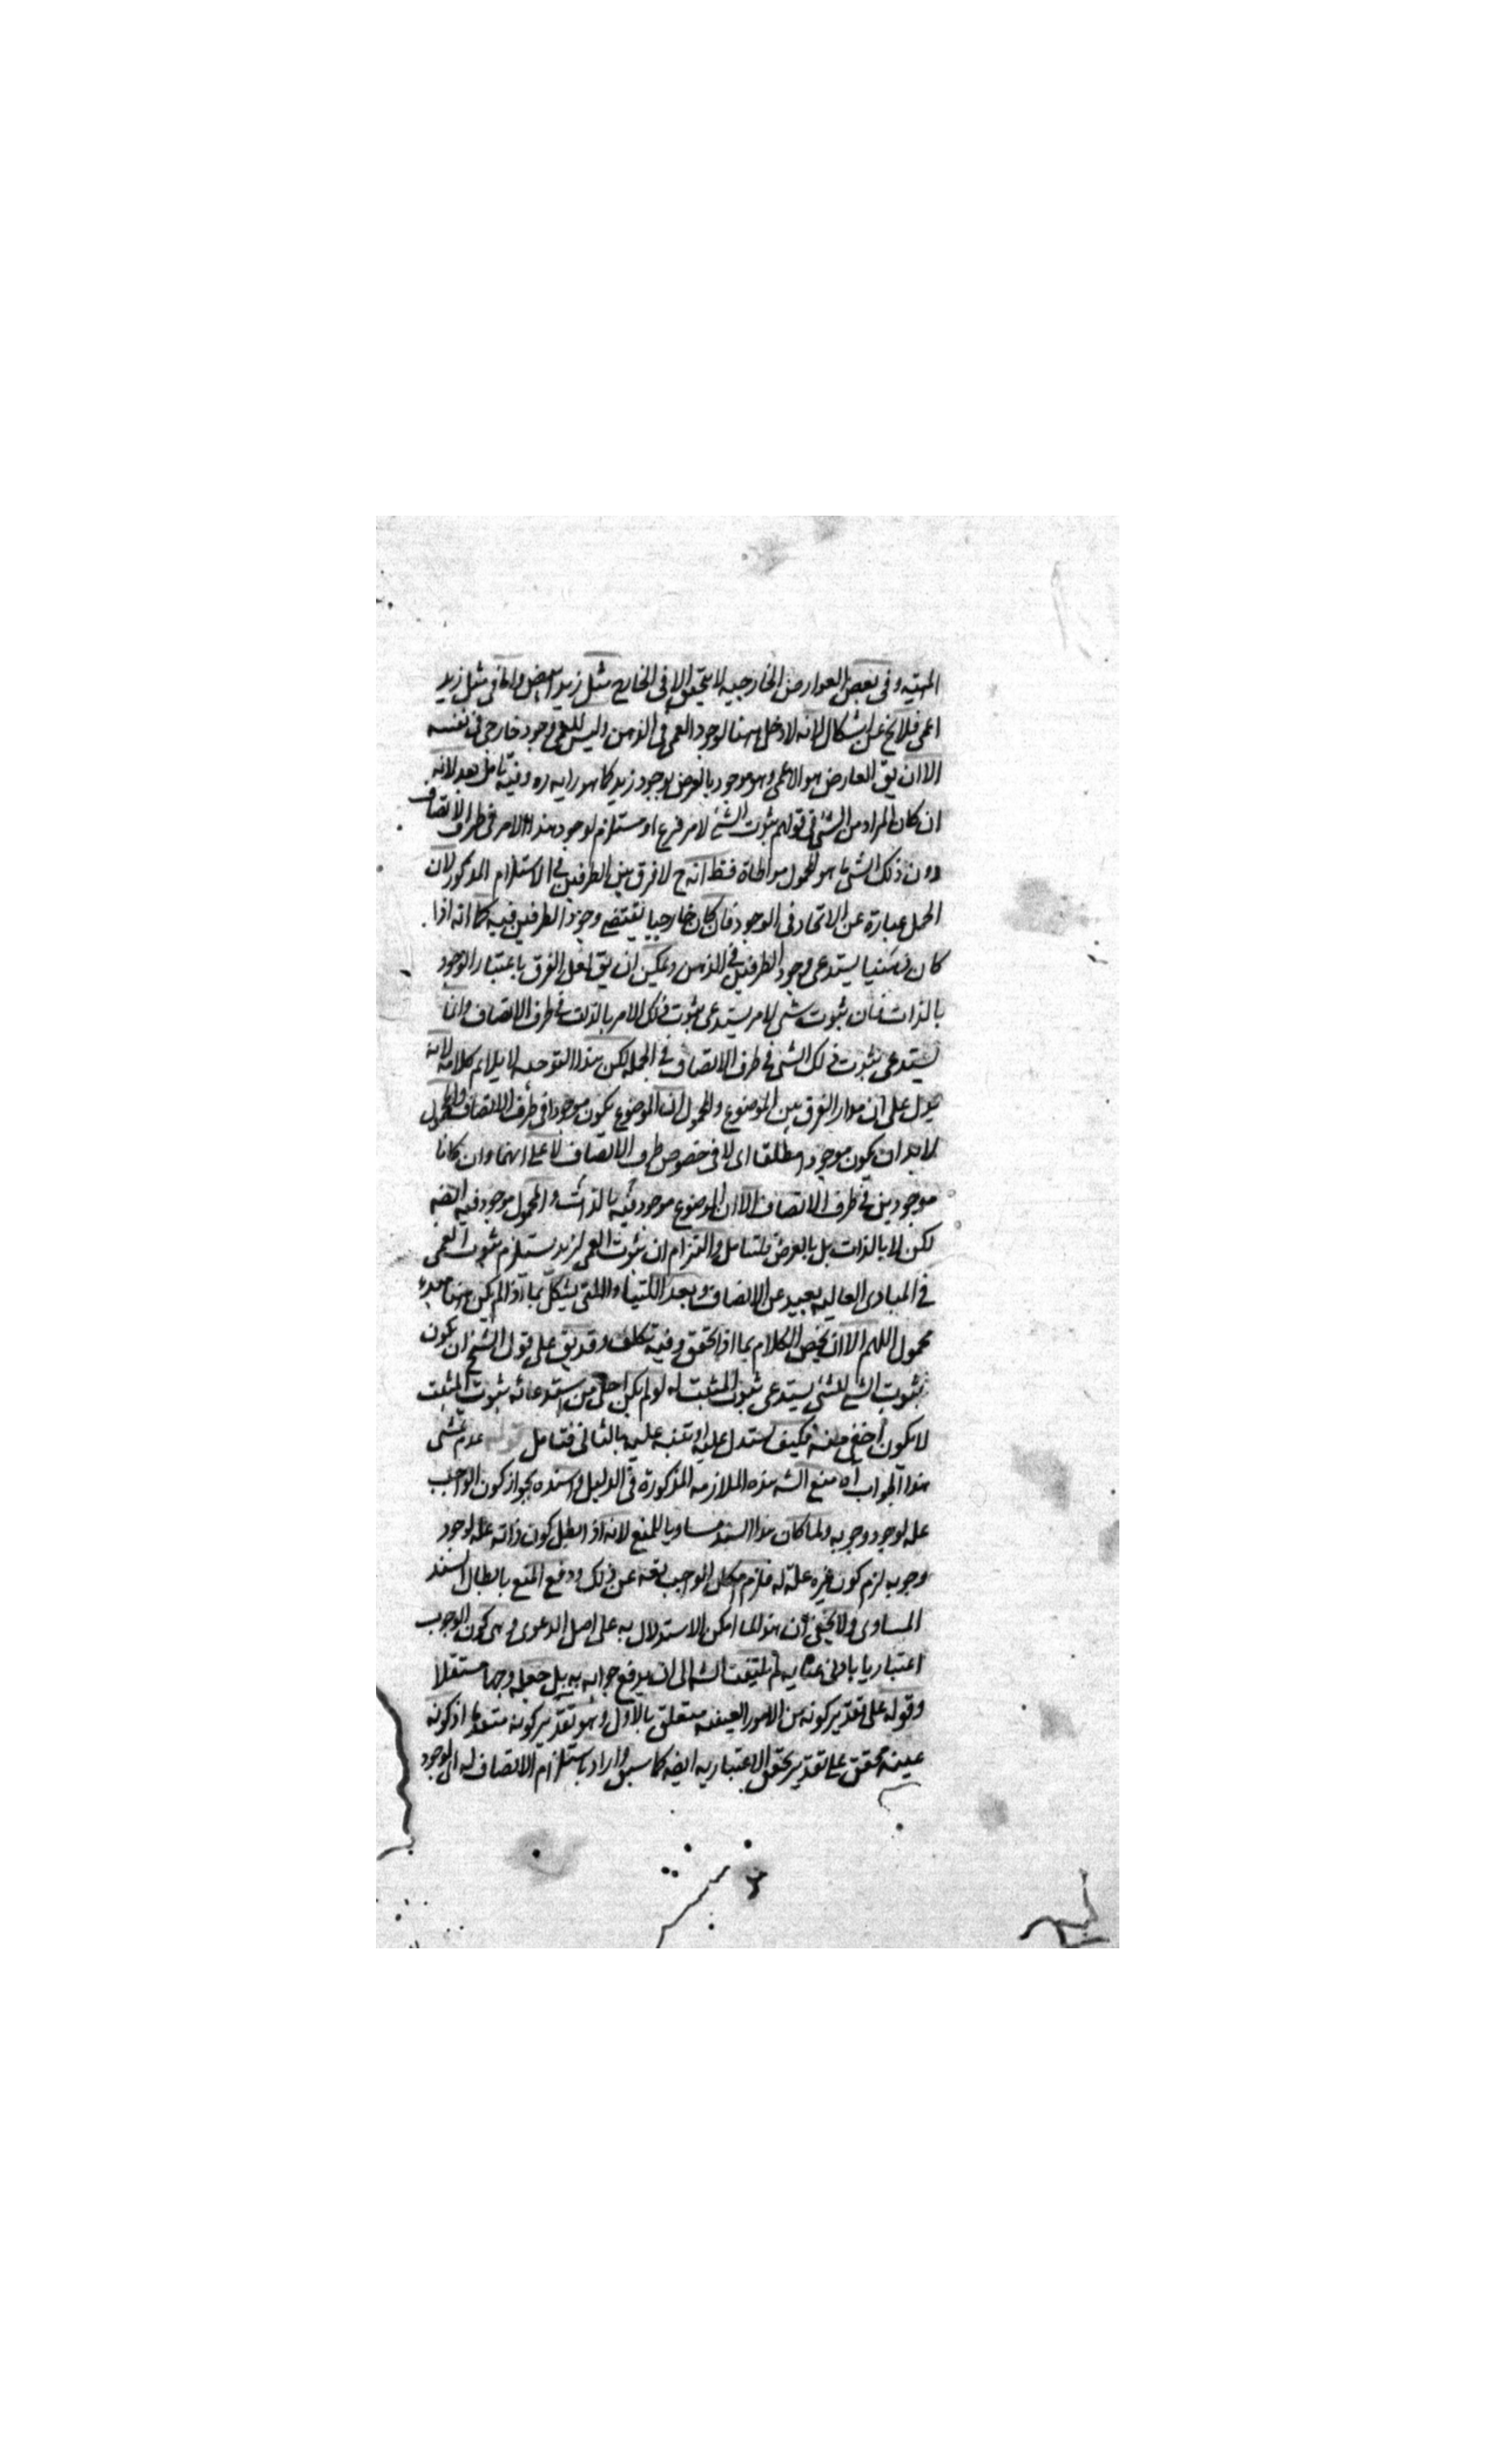 المهيه وفى بعض العوارض الخارجيه لا يتحقق الا فى الخارج مثل زيد ابيض واما فى مثل زيد
اعمى فلا يخ عن اشكال لانه لا دخل ههنا لوجود العمى فى الذهن وليس للعمى وجود خارجى فى نفسه
الا ان يق العارض هو الاعمى وهو موجود بالعرض بوجود زيد كما هو رايه ره وفيه تامل بعد لانه
ان كان المراد من الشئ فى قولهم ثبوت الشئ لامر فرع او مستلزم لوجود هذا الامر فى ظرف الاتصاف
دون ذلك الشئ ما هو المحمول مواطاة فنظ انه ح لا فرق بين الطرفين فى الاستلزام المذكور لان
الحمل عبارة عن الاتحاد فى الوجود فان كان خارجيا يقتضى وجود الطرفين فيه كما انه اذا
كان ذهنيا يستدعى وجود الطرفين فى الذهن ويمكن ان يق لعل الفرق باعتبار الوجود
بالذات فان ثبوت شئ لامر يستدعى ثبوت ذلك الامر بالذات فى ظرف الاتصاف وانما
يستدعى ثبوت ذلك الشئ فى ظرف الاتصاف فى الجملة لكن هذا التوجيه لا يلائم كلامه لانه
يدل على ان مدار الفرق بين الموضوع والمحمول ان الموضوع يكون موجودا فى ظرف الاتصاف والمحمول
لا بد ان يكون موجودا مطلقا اى لا فى خصوص ظرف الاتصاف لا على انهما وان كانا
موجودين فى ظرف الاتصاف الا ان الموضوع موجود فيه بالذات والمحمول موجود فيه ايضه
لكن لا بالذات بل بالعرض فليتامل والتزام ان ثبوت العمى لزيد يستلزم ثبوت العمى
فى المبادى العاليه بعيد عن الانصاف وبعد اللتيا والتى يشكل بما اذا لم يكن هناك مبدء
محمول اللهم الا ان يخص الكلام بما اذا تحقق وفيه تكلف وقد يق على قول الشيخ ان يكون
ثبوت الشئ للشئ يستدعى ثبوت المثبت له لو لم يكن اجلى من استدعائه ثبوت المثبت
لا يكون اخفى منه فكيف يستدل عليه او يتنبه عليه بالثانى فتامل قوله عدم تمشى
هذا الجواب اه منع الشه هذه الملازمه المذكورة فى الدليل واسنده بجواز كون الواجب
علة لوجود وجوبه ولما كان هذا السند مساويا للمنع لانه اذا بطل كون ذاته علة لوجود
وجوبه لزم كون غيره علة له فلزم امكان الواجب تعه عن ذلك ودفع المنع بابطال السند
المساوى ولا يخفى ان هذا لما امكن الاستدلال به على اصل الدعوى وهى كون الوجوب
اعتباريا بادنى عنايه لم يلتفت الشه الى ان يدفع جوابه به بل جعله وجها مستقلا
وقوله على تقدير كونه من الامور العينيه متعلق بالاول وهو تقدير كونه متعلقا اذ كونه
عينه محقق على تقدير تحقق الاعتباريه ايضه كما سبق واراد باستلزام الاتصاف له الى الوجود